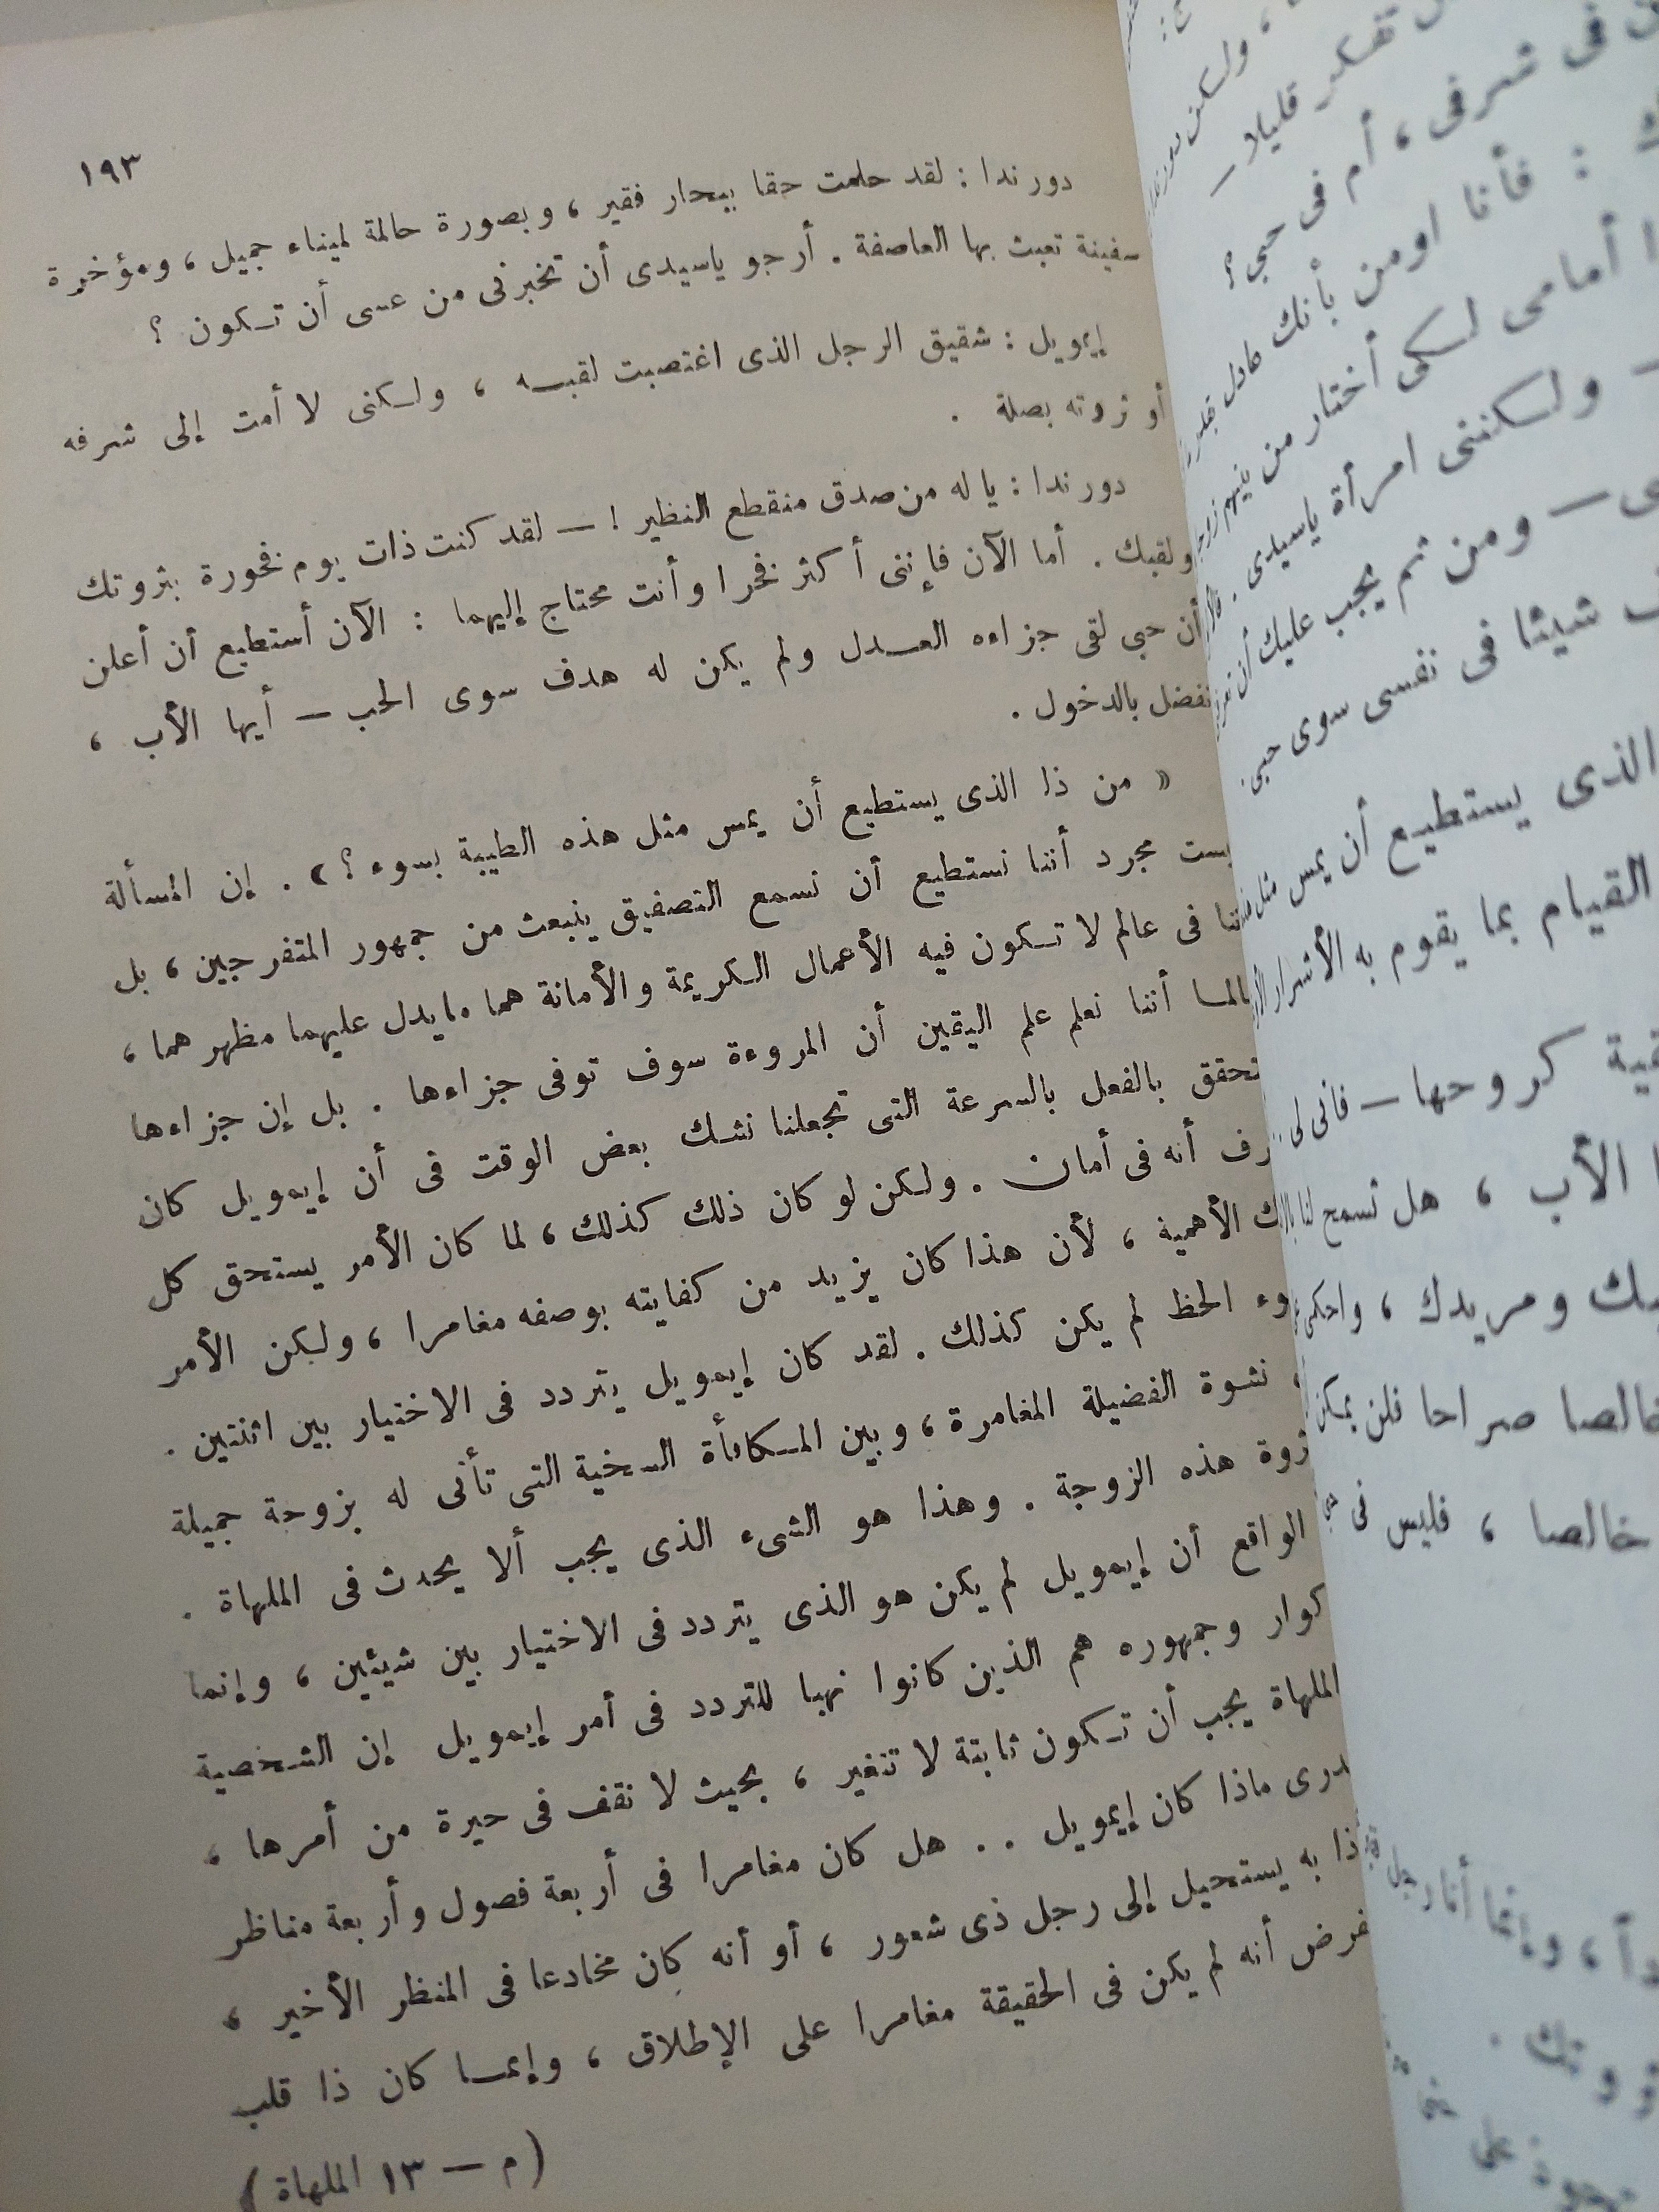 ١٩٣
دورندا : لقد حلمت حقا ببحار فقير ، وبصورة حالمة لميناء جميل ، ومؤخرة
سفينة تعبث بها العاصفة . أرجو ياسيدى أن تخبرنى من عسى أن تكون ؟
إيمويل : شقيق الرجل الذى اغتصبت لقبه ، ولكنى لا أمت إلى شرفه
أو ثروته بصلة .
دورندا : يا له من صدق منقطع النظير ! — لقد كنت ذات يوم فخورة بثروتك
ولقبك . أما الآن فإننى أكثر فخرا وأنت محتاج إليهما : الآن أستطيع أن أعلن
أن حبى لقى جزاءه العدل ولم يكن له هدف سوى الحب — أيها الأب ،
تفضل بالدخول .
« من ذا الذى يستطيع أن يمس مثل هذه الطيبة بسوء ؟ » . إن المسألة
مجرد أننا نستطيع أن نسمع التصفيق ينبعث من جمهور المتفرجين ، بل
فى عالم لا تكون فيه الأعمال الكريمة والأمانة هما ما يدل عليهما مظهرهما ،
أننا نعلم علم اليقين أن المروءة سوف توفى جزاءها . بل إن جزاءها
تحقق بالفعل بالسرعة التى تجعلنا نشك بعض الوقت فى أن إيمويل كان
أنه فى أمان . ولكن لو كان ذلك كذلك ، لما كان الأمر يستحق كل
الأهمية ، لأن هذا كان يزيد من كفايته بوصفه مغامرا ، ولكن الأمر
الحظ لم يكن كذلك . لقد كان إيمويل يتردد فى الاختيار بين اثنتين .
نشوة الفضيلة المغامرة ، وبين المكافأة السخية التى تأتى له بزوجة جميلة
هذه الزوجة . وهذا هو الشىء الذى يجب ألا يحدث فى الملهاة .
الواقع أن إيمويل لم يكن هو الذى يتردد فى الاختيار بين شيئين ، وإنما
وجمهوره هم الذين كانوا نهبا للتردد فى أمر إيمويل إن الشخصية
الملهاة يجب أن تكون ثابتة لا تتغير ، بحيث لا نقف فى حيرة من أمرها ،
ماذا كان إيمويل . . هل كان مغامرا فى أربعة فصول وأربعة مناظر
به يستحيل إلى رجل ذى شعور ، أو أنه كان مخادعا فى المنظر الأخير ،
أنه لم يكن فى الحقيقة مغامرا على الإطلاق ، وإنما كان ذا قلب
( م — ١٣ الملهاة )
تفكر قليلا —
فى شرفى ، أم فى حبى ؟
: فأنا اومن بأنك عادل
أمامى لكى أختار من بينهم
— ولكننى امرأة ياسيدى .
— ومن ثم يجب عليك أن
شيئا فى نفسى سوى حبى .
الذى يستطيع أن يمس مثل
القيام بما يقوم به الأشرار
كروحها — فانى لى
الأب ، هل تسمح لنا
ومريدك ، واحكى
خالصا صراحا فلن يمكن
خالصا ، فليس فى
، وإنما أنا رجل